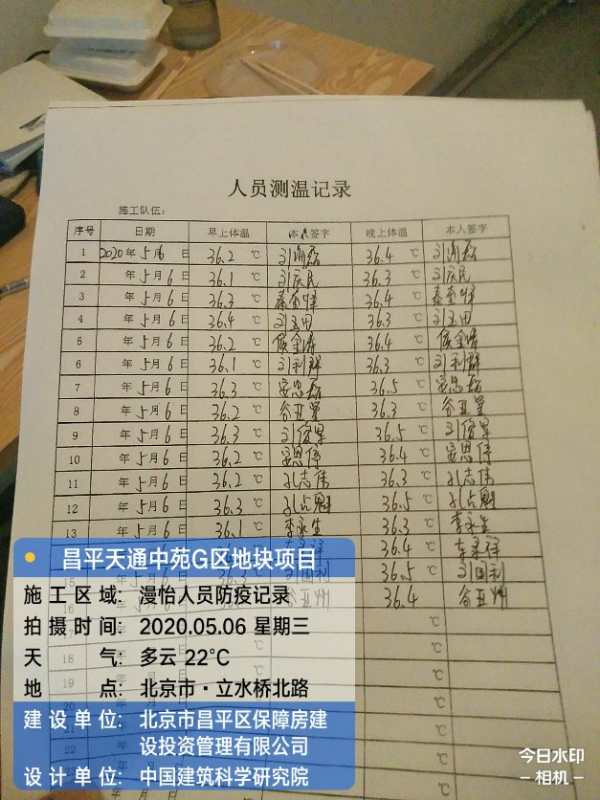 人员测温记录
施工队伍：
序号 日期 早上体温 本人签字 晚上体温 本人签字
1 2020年5月6日 36.2 ℃ 36.4 ℃
2 年5月6日 36.1 ℃ 刘庆民 36.3 ℃ 刘庆民
3 年5月6日 36.3 ℃ 36.4 ℃
4 年5月6日 36.4 ℃ 刘玉田 36.3 ℃ 刘玉田
5 年5月6日 36.2 ℃ 36.4 ℃
6 年5月6日 36.1 ℃ 刘利群 36.3 ℃ 刘利群
7 年5月6日 36.3 ℃ 36.5 ℃
8 年5月6日 36.2 ℃ 36.3 ℃
9 年5月6日 36.3 ℃ 36.5 ℃
10 年5月6日 36.2 ℃ 36.4 ℃
11 年5月6日 36.2 ℃ 孔志伟 36.3 ℃ 孔志伟
12 年5月6日 36.3 ℃ 孔占魁 36.5 ℃ 孔占魁
13 年5月6日 36.1 ℃ 李永生 36.3 ℃ 李永生
36.4 ℃
36.5 ℃ 刘国利
36.4 ℃ 谷亚州
℃
18 ℃
℃
℃
℃
℃
昌平天通中苑G区地块项目
施工区域：漫怡人员防疫记录
拍摄时间：2020.05.06 星期三
天气：多云 22℃
地点：北京市·立水桥北路
建设单位：北京市昌平区保障房建
设投资管理有限公司
设计单位：中国建筑科学研究院
今日水印
-相机-